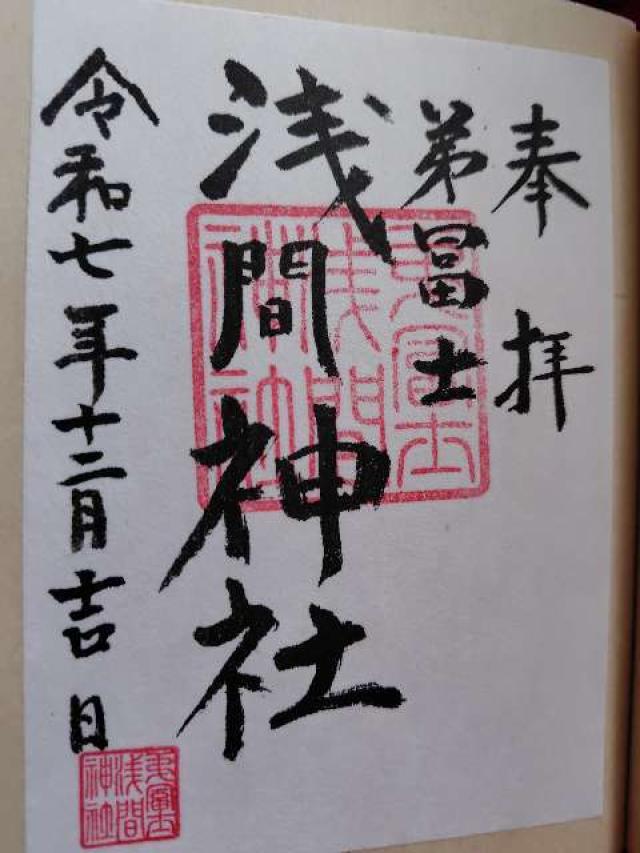 奉拝
弟冨士
浅間神社
令和七年十二月吉日
弟冨士
浅間
神社
弟冨士
浅間
神社